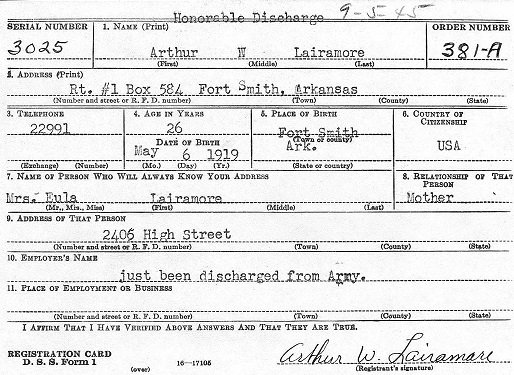 Honorable Discharge 9-5-45
SERIAL NUMBER 1. NAME (Print) ORDER NUMBER
3025 Arthur W Lairamore 381-A
(First) (Middle) (Last)
2. ADDRESS (Print)
Rt. #1 Box 584 Fort Smith, Arkansas
(Number and street or R. F. D. number) (Town) (County) (State)
3. TELEPHONE 4. AGE IN YEARS 5. PLACE OF BIRTH 6. COUNTRY OF CITIZENSHIP
22991 26 Fort Smith
DATE OF BIRTH (Town or county)
May 6 1919 Ark. USA
(Exchange) (Number) (Mo.) (Day) (Yr.) (State or country)
7. NAME OF PERSON WHO WILL ALWAYS KNOW YOUR ADDRESS 8. RELATIONSHIP OF THAT PERSON
Mrs. Eula Lairamore Mother
(Mr., Mrs., Miss) (First) (Middle) (Last)
9. ADDRESS OF THAT PERSON
2406 High Street
(Number and street or R. F. D. number) (Town) (County) (State)
10. EMPLOYER'S NAME
just been discharged from Army.
11. PLACE OF EMPLOYMENT OR BUSINESS
(Number and street or R. F. D. number) (Town) (County) (State)
I AFFIRM THAT I HAVE VERIFIED ABOVE ANSWERS AND THAT THEY ARE TRUE.
REGISTRATION CARD
D. S. S. Form 1 (over) 16—17105 Arthur W. Lairamore
(Registrant's signature)